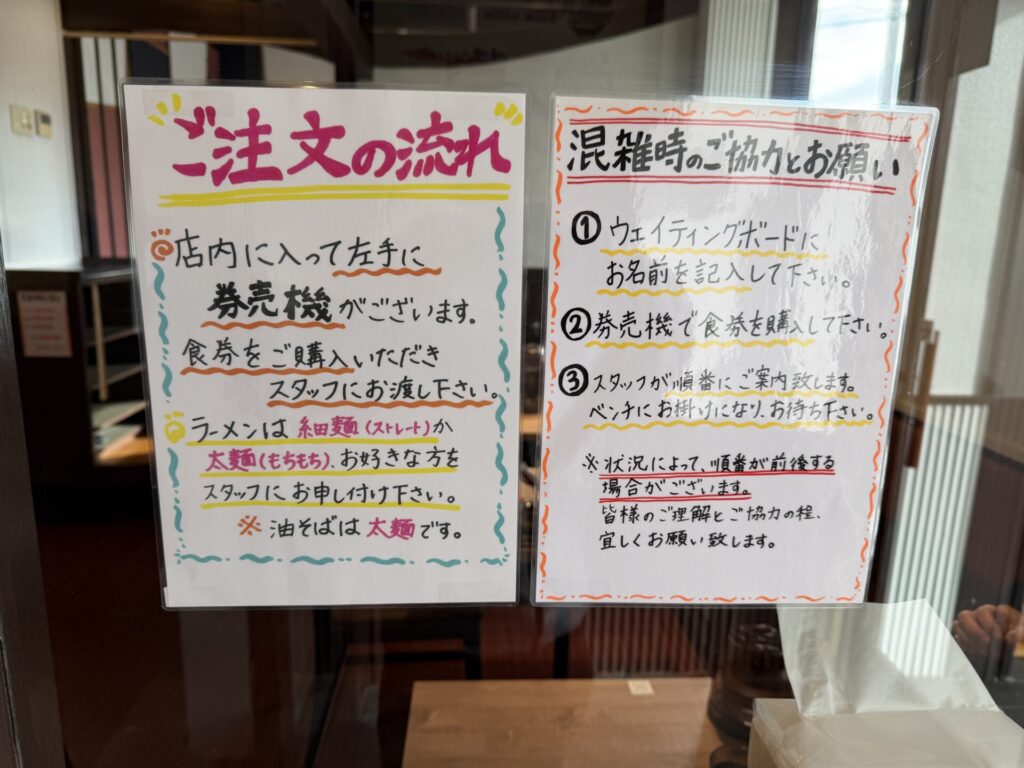 ご注文の流れ
店内に入って左手に
券売機がございます。
食券をご購入いただき
スタッフにお渡し下さい。
ラーメンは細麺(ストレート)か
太麺(もちもち)、お好きな方を
スタッフにお申し付け下さい。
※油そばは太麺です。
混雑時のご協力とお願い
①ウェイティングボードに
お名前を記入して下さい。
②券売機で食券を購入して下さい。
③スタッフが順番にご案内致します。
ベンチにお掛けになり、お待ち下さい。
※状況によって、順番が前後する
場合がございます。
皆様のご理解とご協力の程、
宜しくお願い致します。